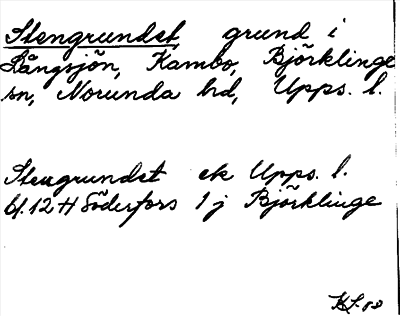 Stengrundet, grund i
Långsjön, Kambo, Björklinge
sn, Norunda hd, Upps. l.
Stengrundet ek Upps. l.
bl. 12 H Söderfors 1 j Björklinge